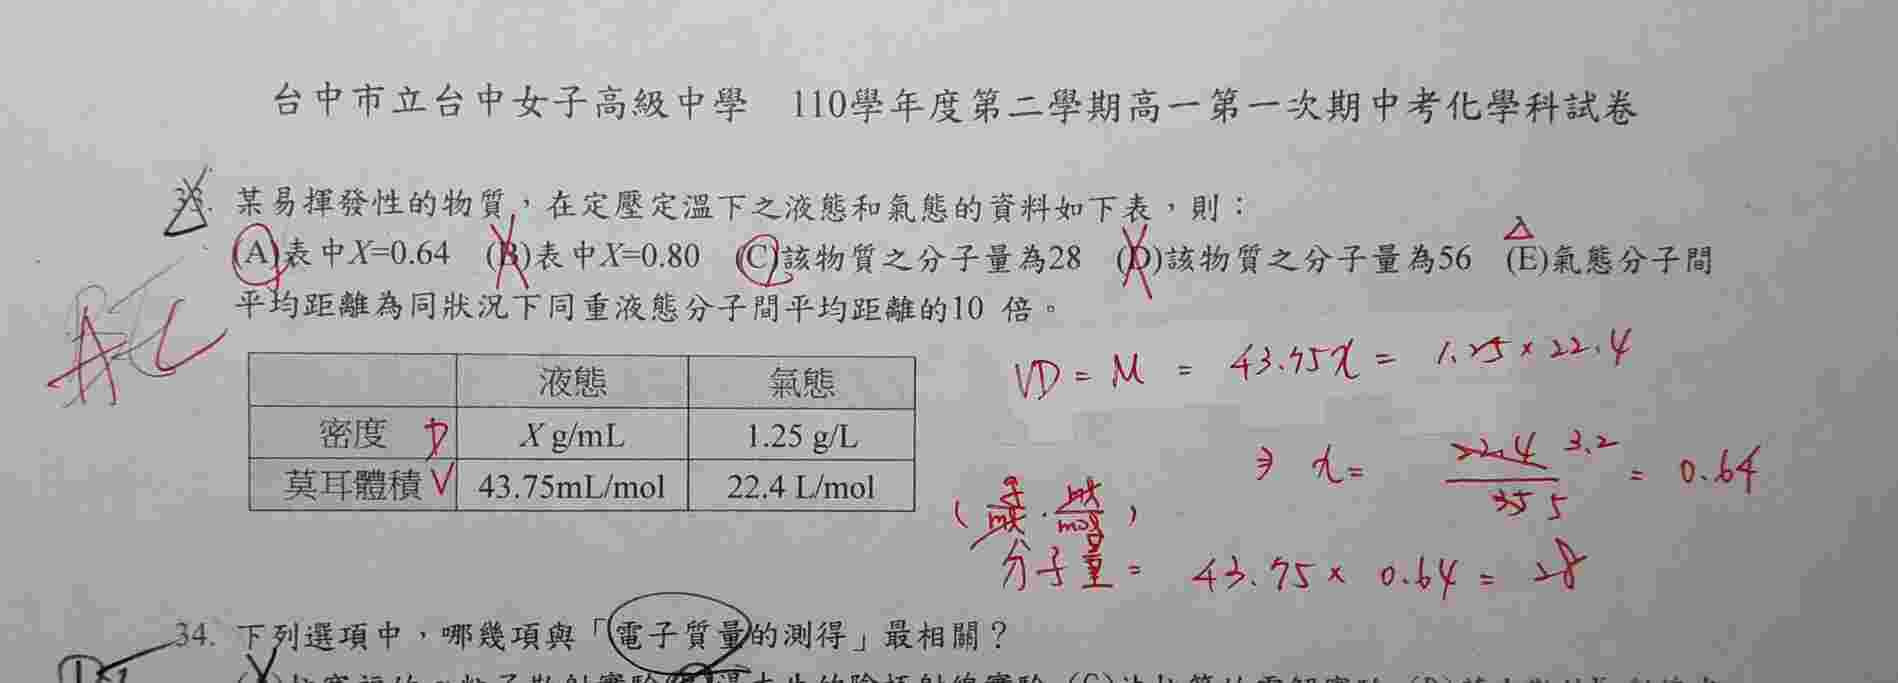 台中市立台中女子高級中學 110學年度第二學期高一第一次期中考化學科試卷
33. 某易揮發性的物質，在定壓定溫下之液態和氣態的資料如下表，則：
(A)表中X=0.64 (B)表中X=0.80 (C)該物質之分子量為28 (D)該物質之分子量為56 (E)氣態分子間
平均距離為同狀況下同重液態分子間平均距離的10 倍。
液態 氣態
密度 D X g/mL 1.25 g/L
莫耳體積 V 43.75mL/mol 22.4 L/mol
VD = M = 43.75x = 1.25 × 22.4
x = 22.4 3.2 / 35 5 = 0.64
分子量 = 43.75 × 0.64 = 28
34. 下列選項中，哪幾項與「電子質量的測得」最相關？